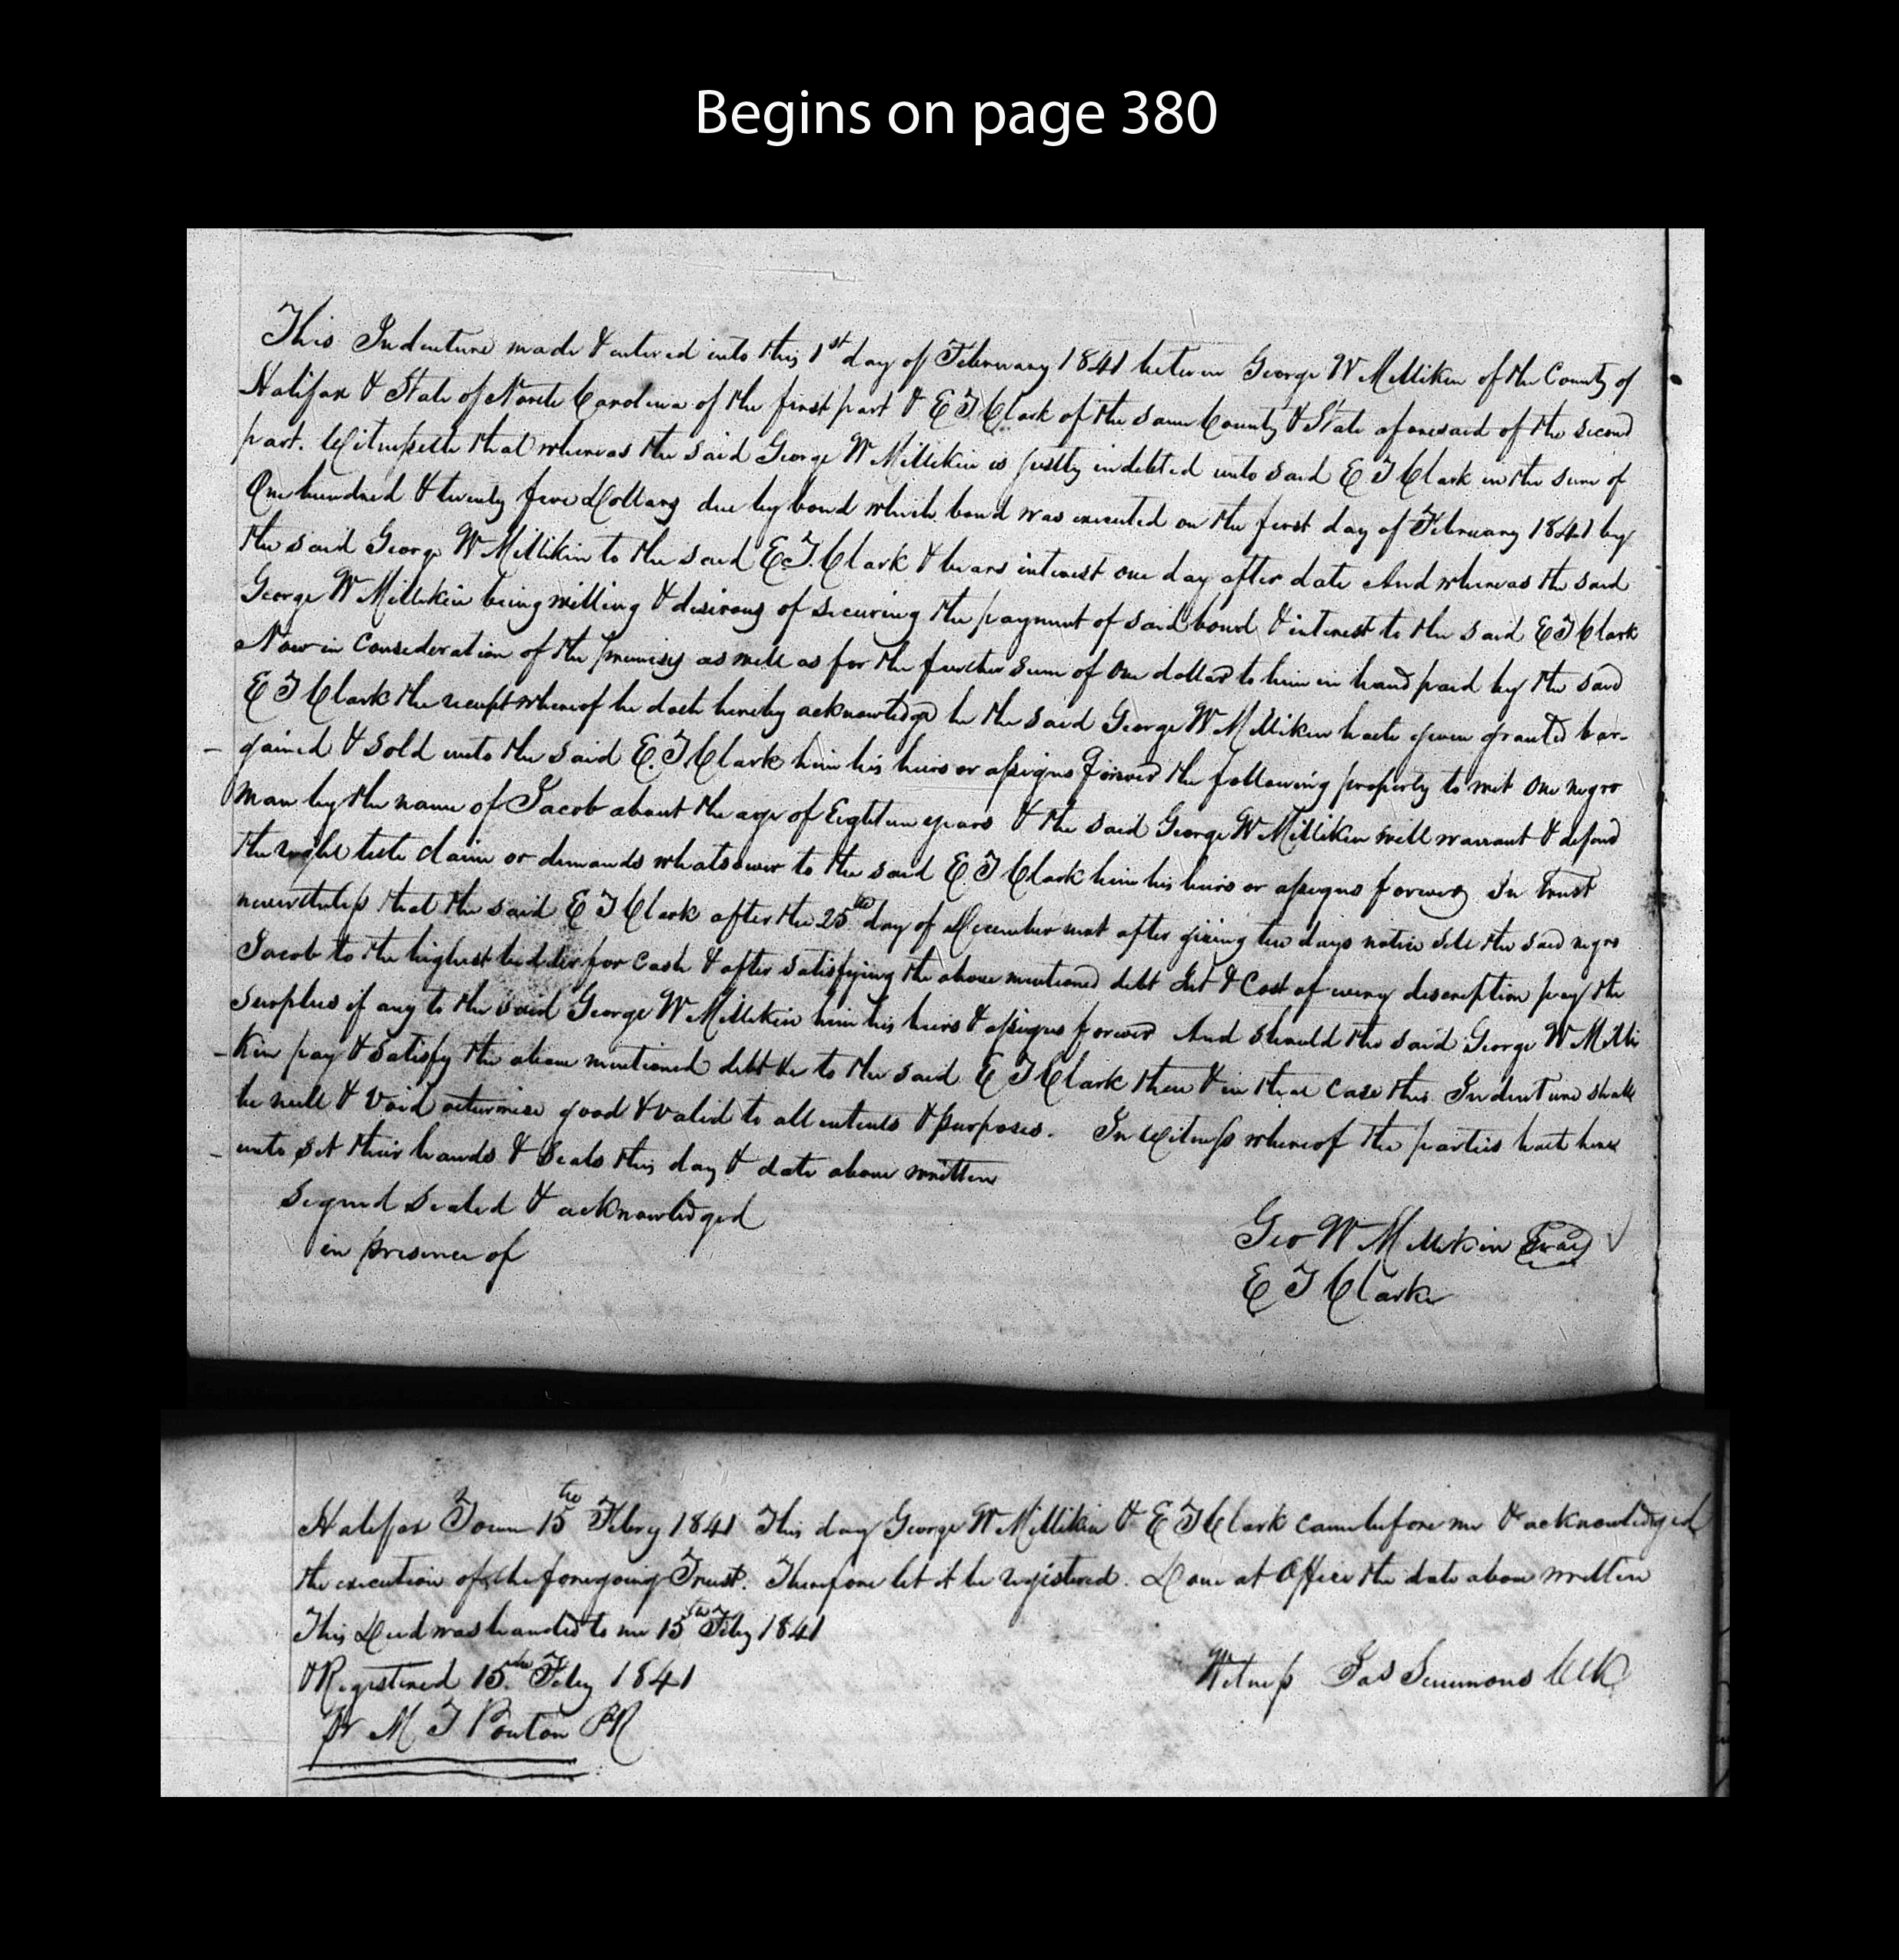 Begins on page 380
This Indenture made & entered into this 1st day of February 1841 between George W Millikin of the County of
Halifax & State of North Carolina of the first part & E T Clark of the same County & State aforesaid of the second
part. Witnesseth that whereas the said George W Millikin is justly indebted unto said E T Clark in the sum of
One hundred & twenty five Dollars due by bond which bond was executed on the first day of February 1841 by
the said George W Millikin to the said E.T. Clark & bears interest one day after date And whereas the said
George W Millikin being willing & desirous of securing the payment of said bond & interest to the said E T Clark
Now in Consideration of the premises as well as for the further sum of one dollar to him in hand paid by the said
E T Clark the receipt whereof he doth hereby acknowledge he the said George W Millikin hath given granted bar-
gained & sold unto the said E. T Clark him his heirs or assigns forever the following property to wit One negro
man by the name of Jacob about the age of Eighteen years & the said George W Millikin will warrant & defend
the right title claim or demands whatsoever to the said E. T Clark him his heirs or assigns forever In Trust
nevertheless that the said E T Clark after the 25th day of December next after giving ten days notice sell the said negro
Jacob to the highest bidder for Cash & after satisfying the above mentioned debt Int & Cost of every description pay the
surplus if any to the said George W Millikin him his heirs & assigns forever And should the said George W Milli
-kin pay & satisfy the above mentioned debt &c to the said E T Clark then & in that case this Indenture shall
be null & void otherwise good & valid to all intents & purposes. In Witness whereof the parties hath here
-unto set their hands & seals this day & date above written
Signed Sealed & acknowledged
in presence of
Geo W Millikin Seal
E T Clark
Halifax Town 15th Febry 1841 This day George W Millikin & E T Clark came before me & acknowledged
the execution of the foregoing Trust. Therefore let it be registered. Done at Office the date above written
This Deed was handed to me 15th Feby 1841
& Registered 15th Feby 1841
Witness Jas Simmons Clk
Pr M T Ponton PR